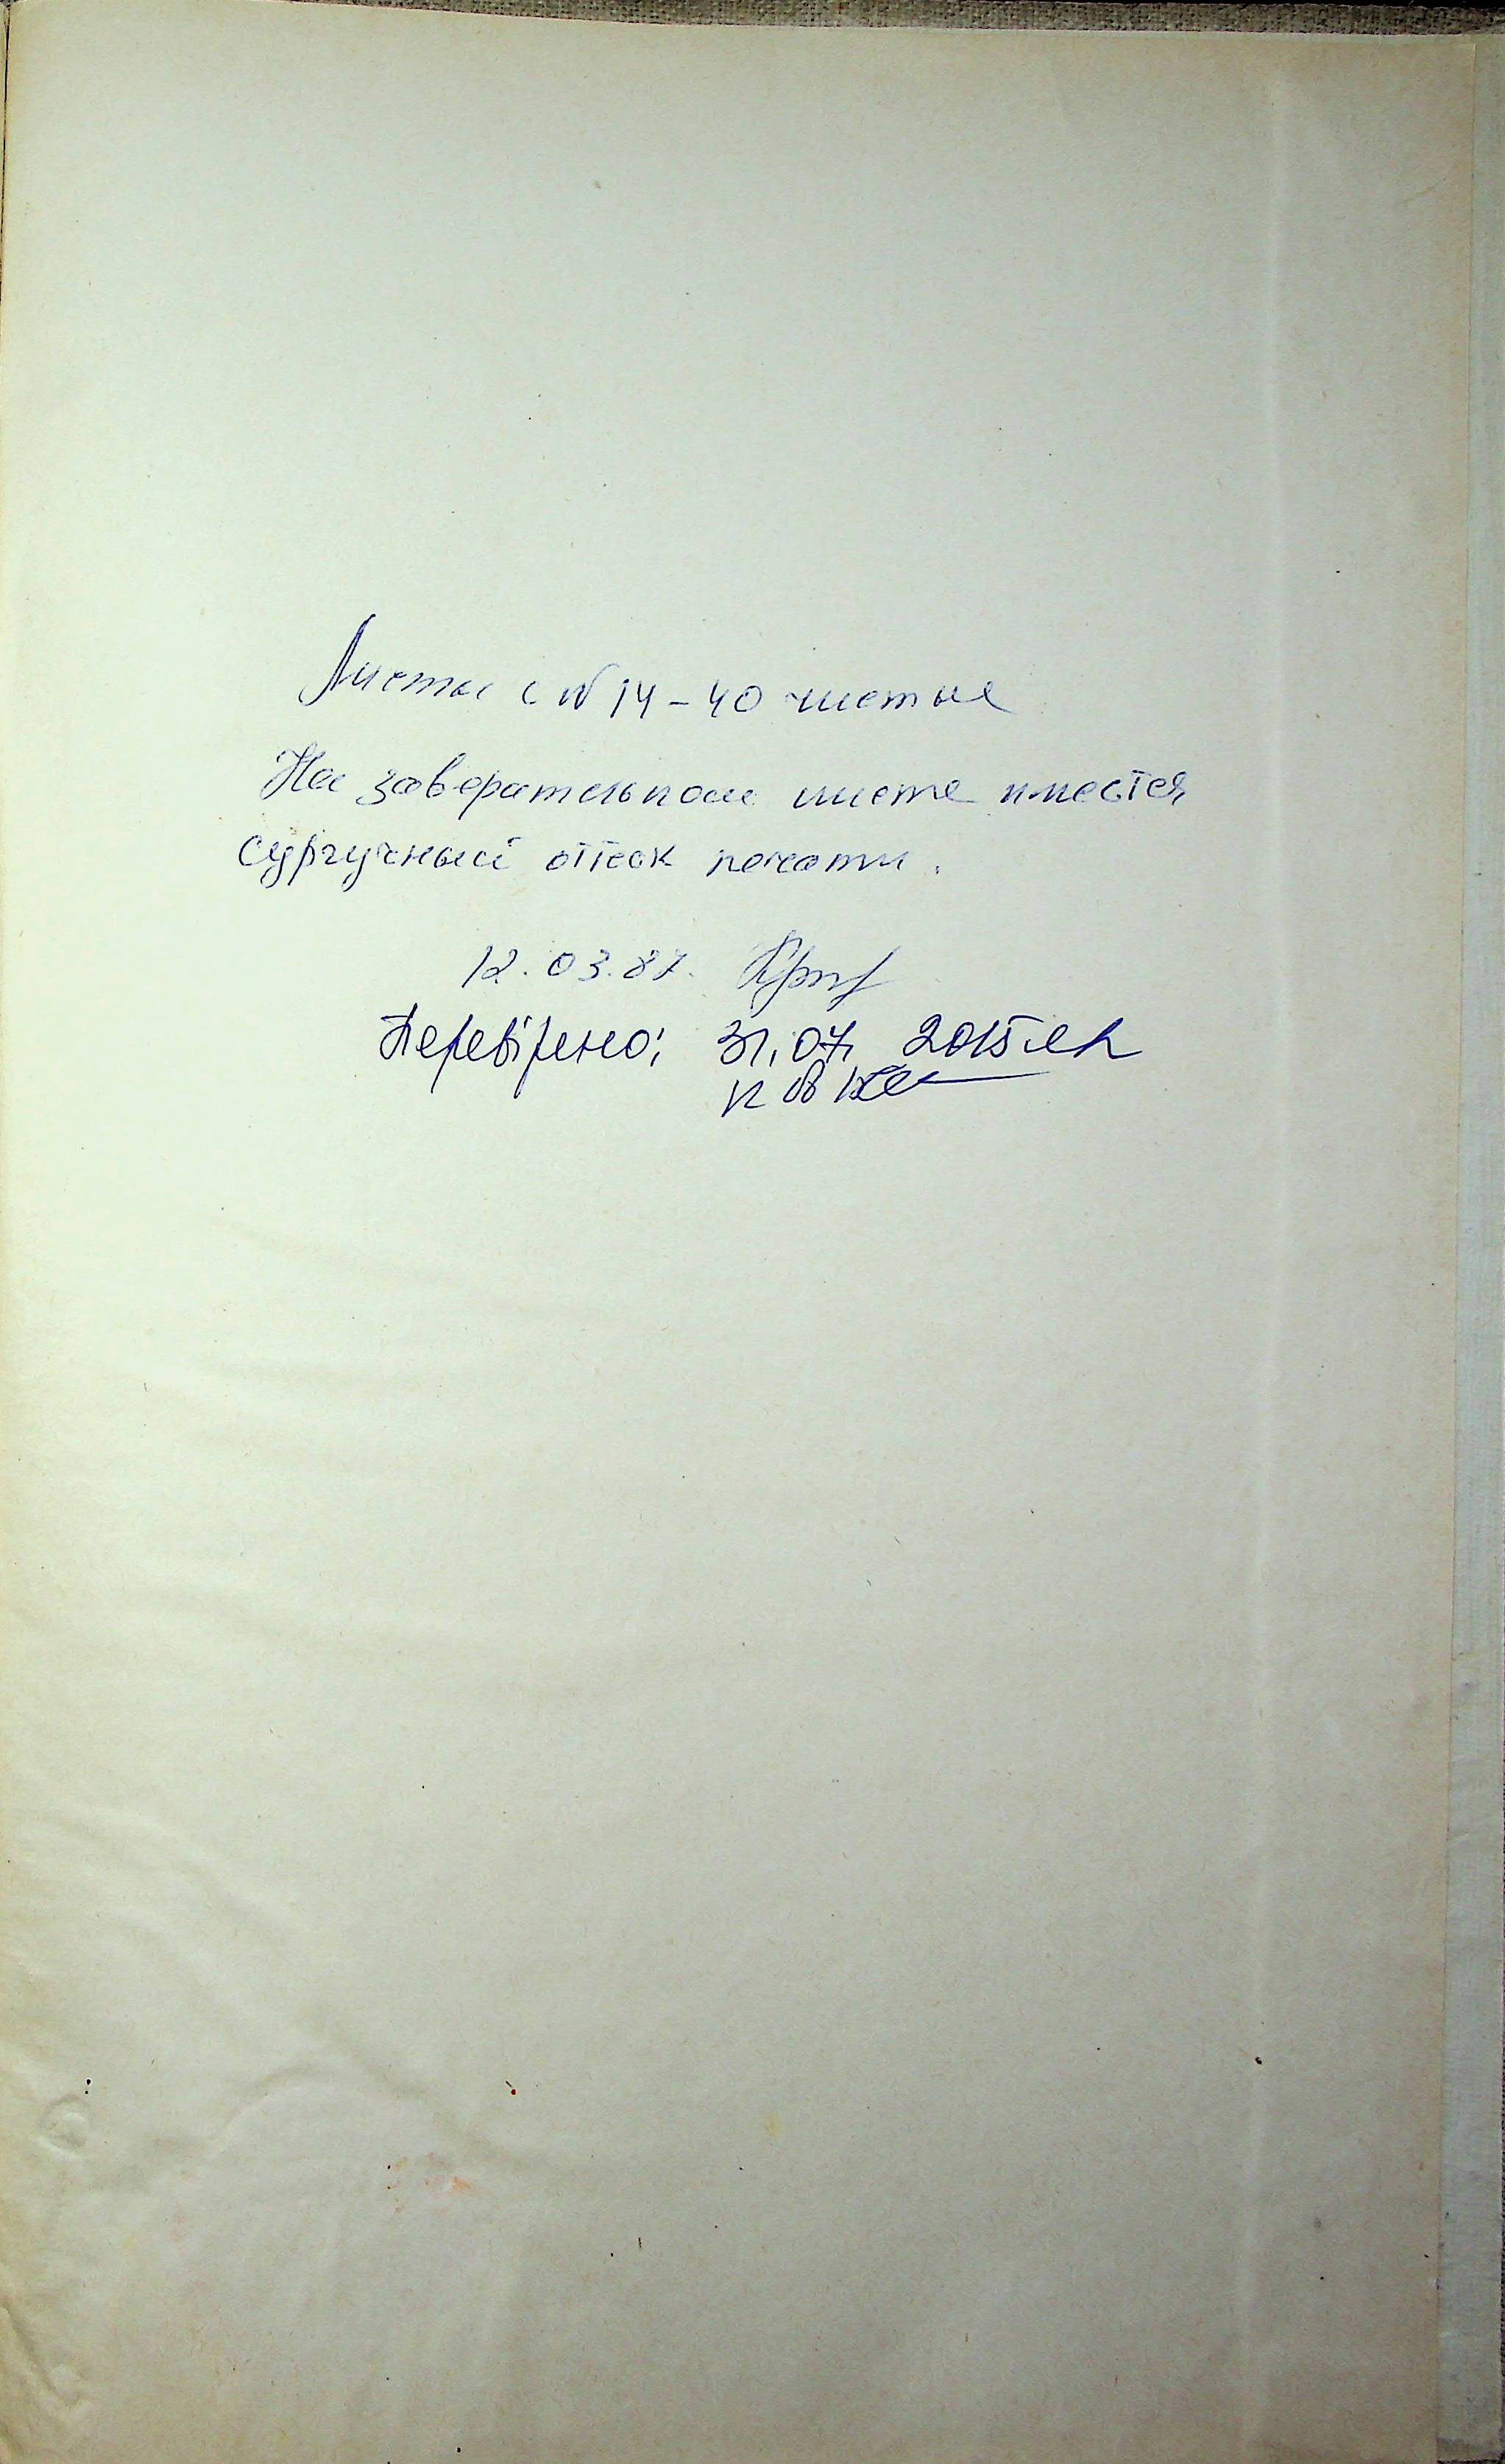 Листы с N 14-40 чистые
На заверательном листе имеется
сургучный оттск печати.
12.03.87.
Перевірено: 31.07. 2015